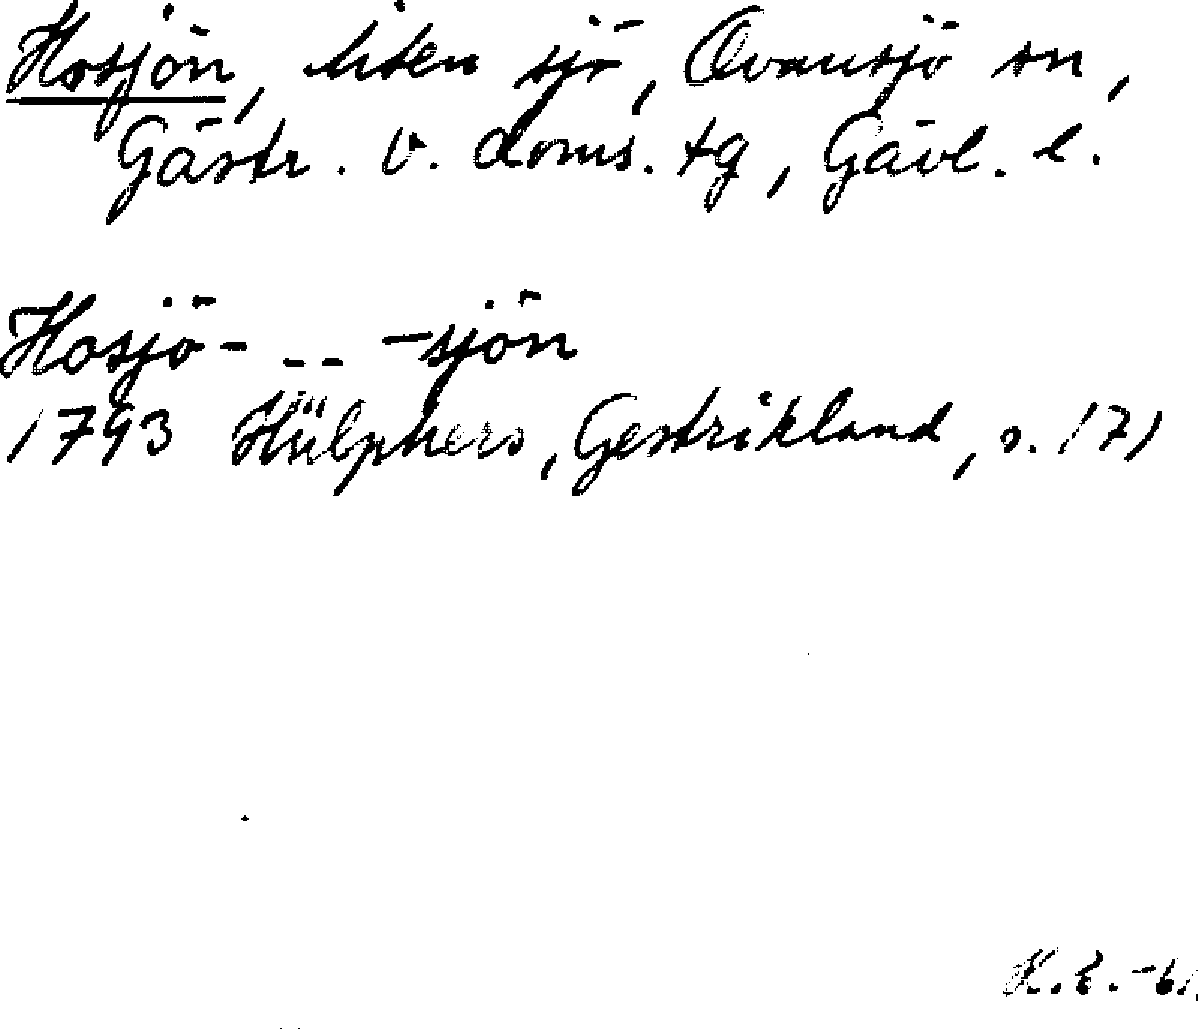 Hosjön, liten sjö, Ovansjö sn,
Gästr. v. doms. tg, Gävl. l.
Hosjö- -- -sjön
1793 Hülphers, Gestrikland, s. 171